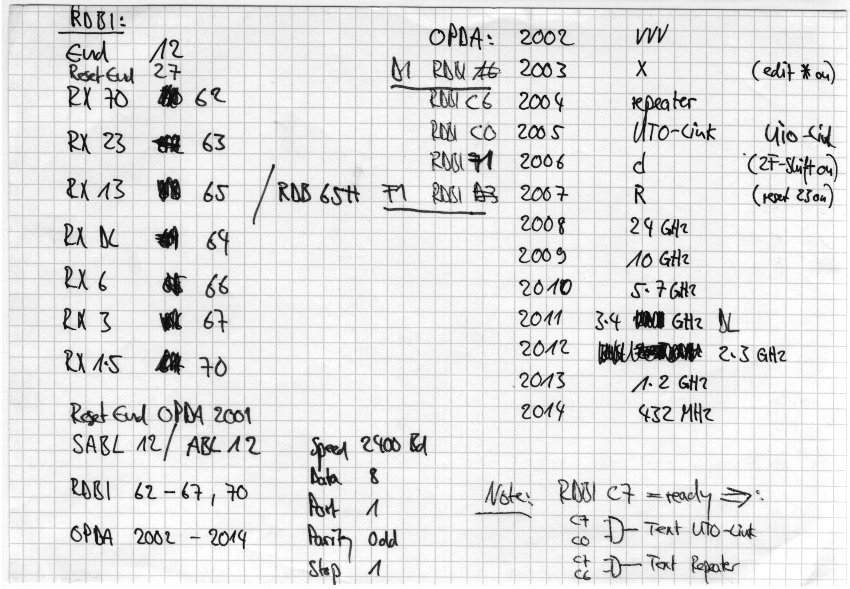 RDBI:
End 12
Reset End 27
RX 70 62
RX 23 63
RX 13 65 / RDB 65H
RX DL 64
RX 6 66
RX 3 67
RX 1.5 70
Reset End OPDA 2001
SABL 12 / ABL 12
RDBI 62 – 67, 70
OPDA 2002 – 2014
OPDA: 2002 VVV
D1 RDBI 2003 X (edit * on)
RDBI C6 2004 repeater
RDBI C0 2005 UTO-Link UTO-Link
RDBI 71 2006 d (ZF-Shift on)
F1 RDBI 2007 R (reset 23 on)
2008 24 GHz
2009 10 GHz
2010 5.7 GHz
2011 3.4 GHz DL
2012 2.3 GHz
2013 1.2 GHz
2014 432 MHz
Speed 2400 Bd
Data 8
Port 1
Parity Odd
Stop 1
Note: RDBI C7 = ready ⇒:
C7
C0 Text UTO-Link
C7
C6 Text Repeater